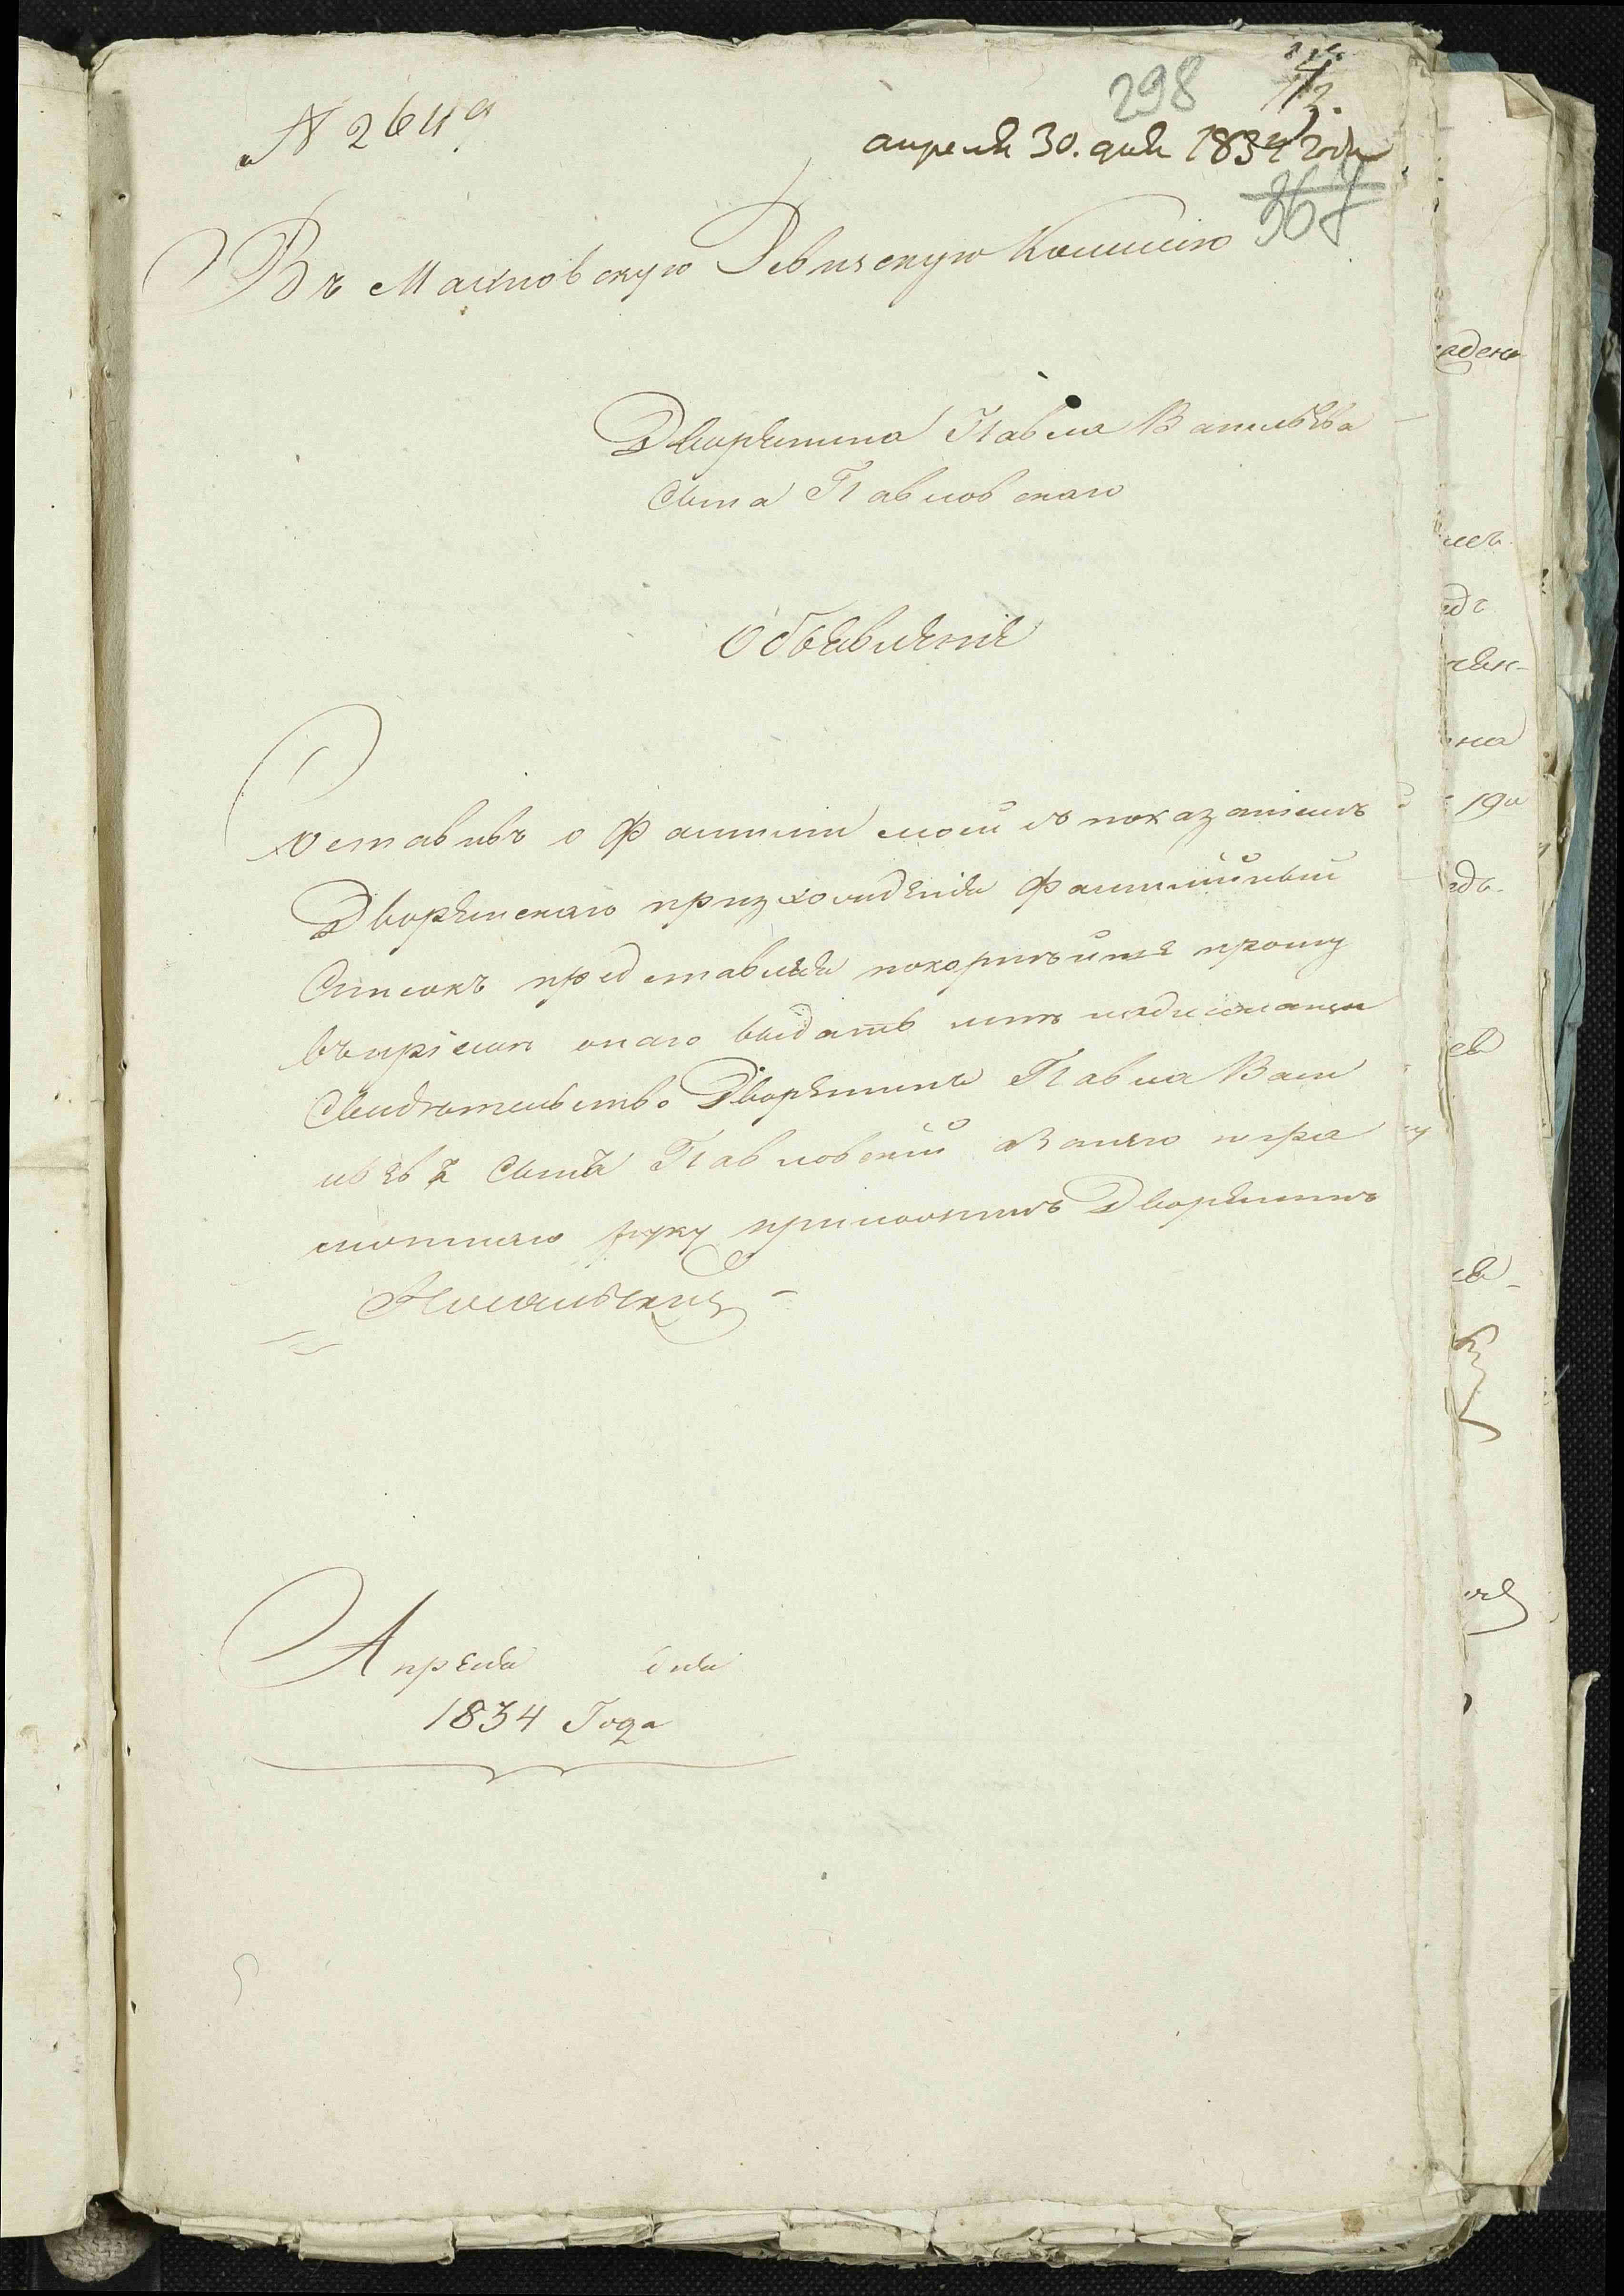 № 2649
298
апреля 30. дня 1834 года
367
Въ Махновскую Ревизскую Комисію
Дворенина Павла Васильева
Сына Павловскаго
Объевленіе
Составивъ о Фамилии моей съ показаніемъ
Дворенскаго произхожденія Фамилийный
Списокъ представляя покорнейше прошу
въпріеми онаго выдать мнѣ надлежащее
Свидетельство Дворенинъ Павла Васи
льевъ Сынъ Павловский а Занего негра
мотнаго руку приложилъ Дворенинъ
Апреля дня
1834 Года